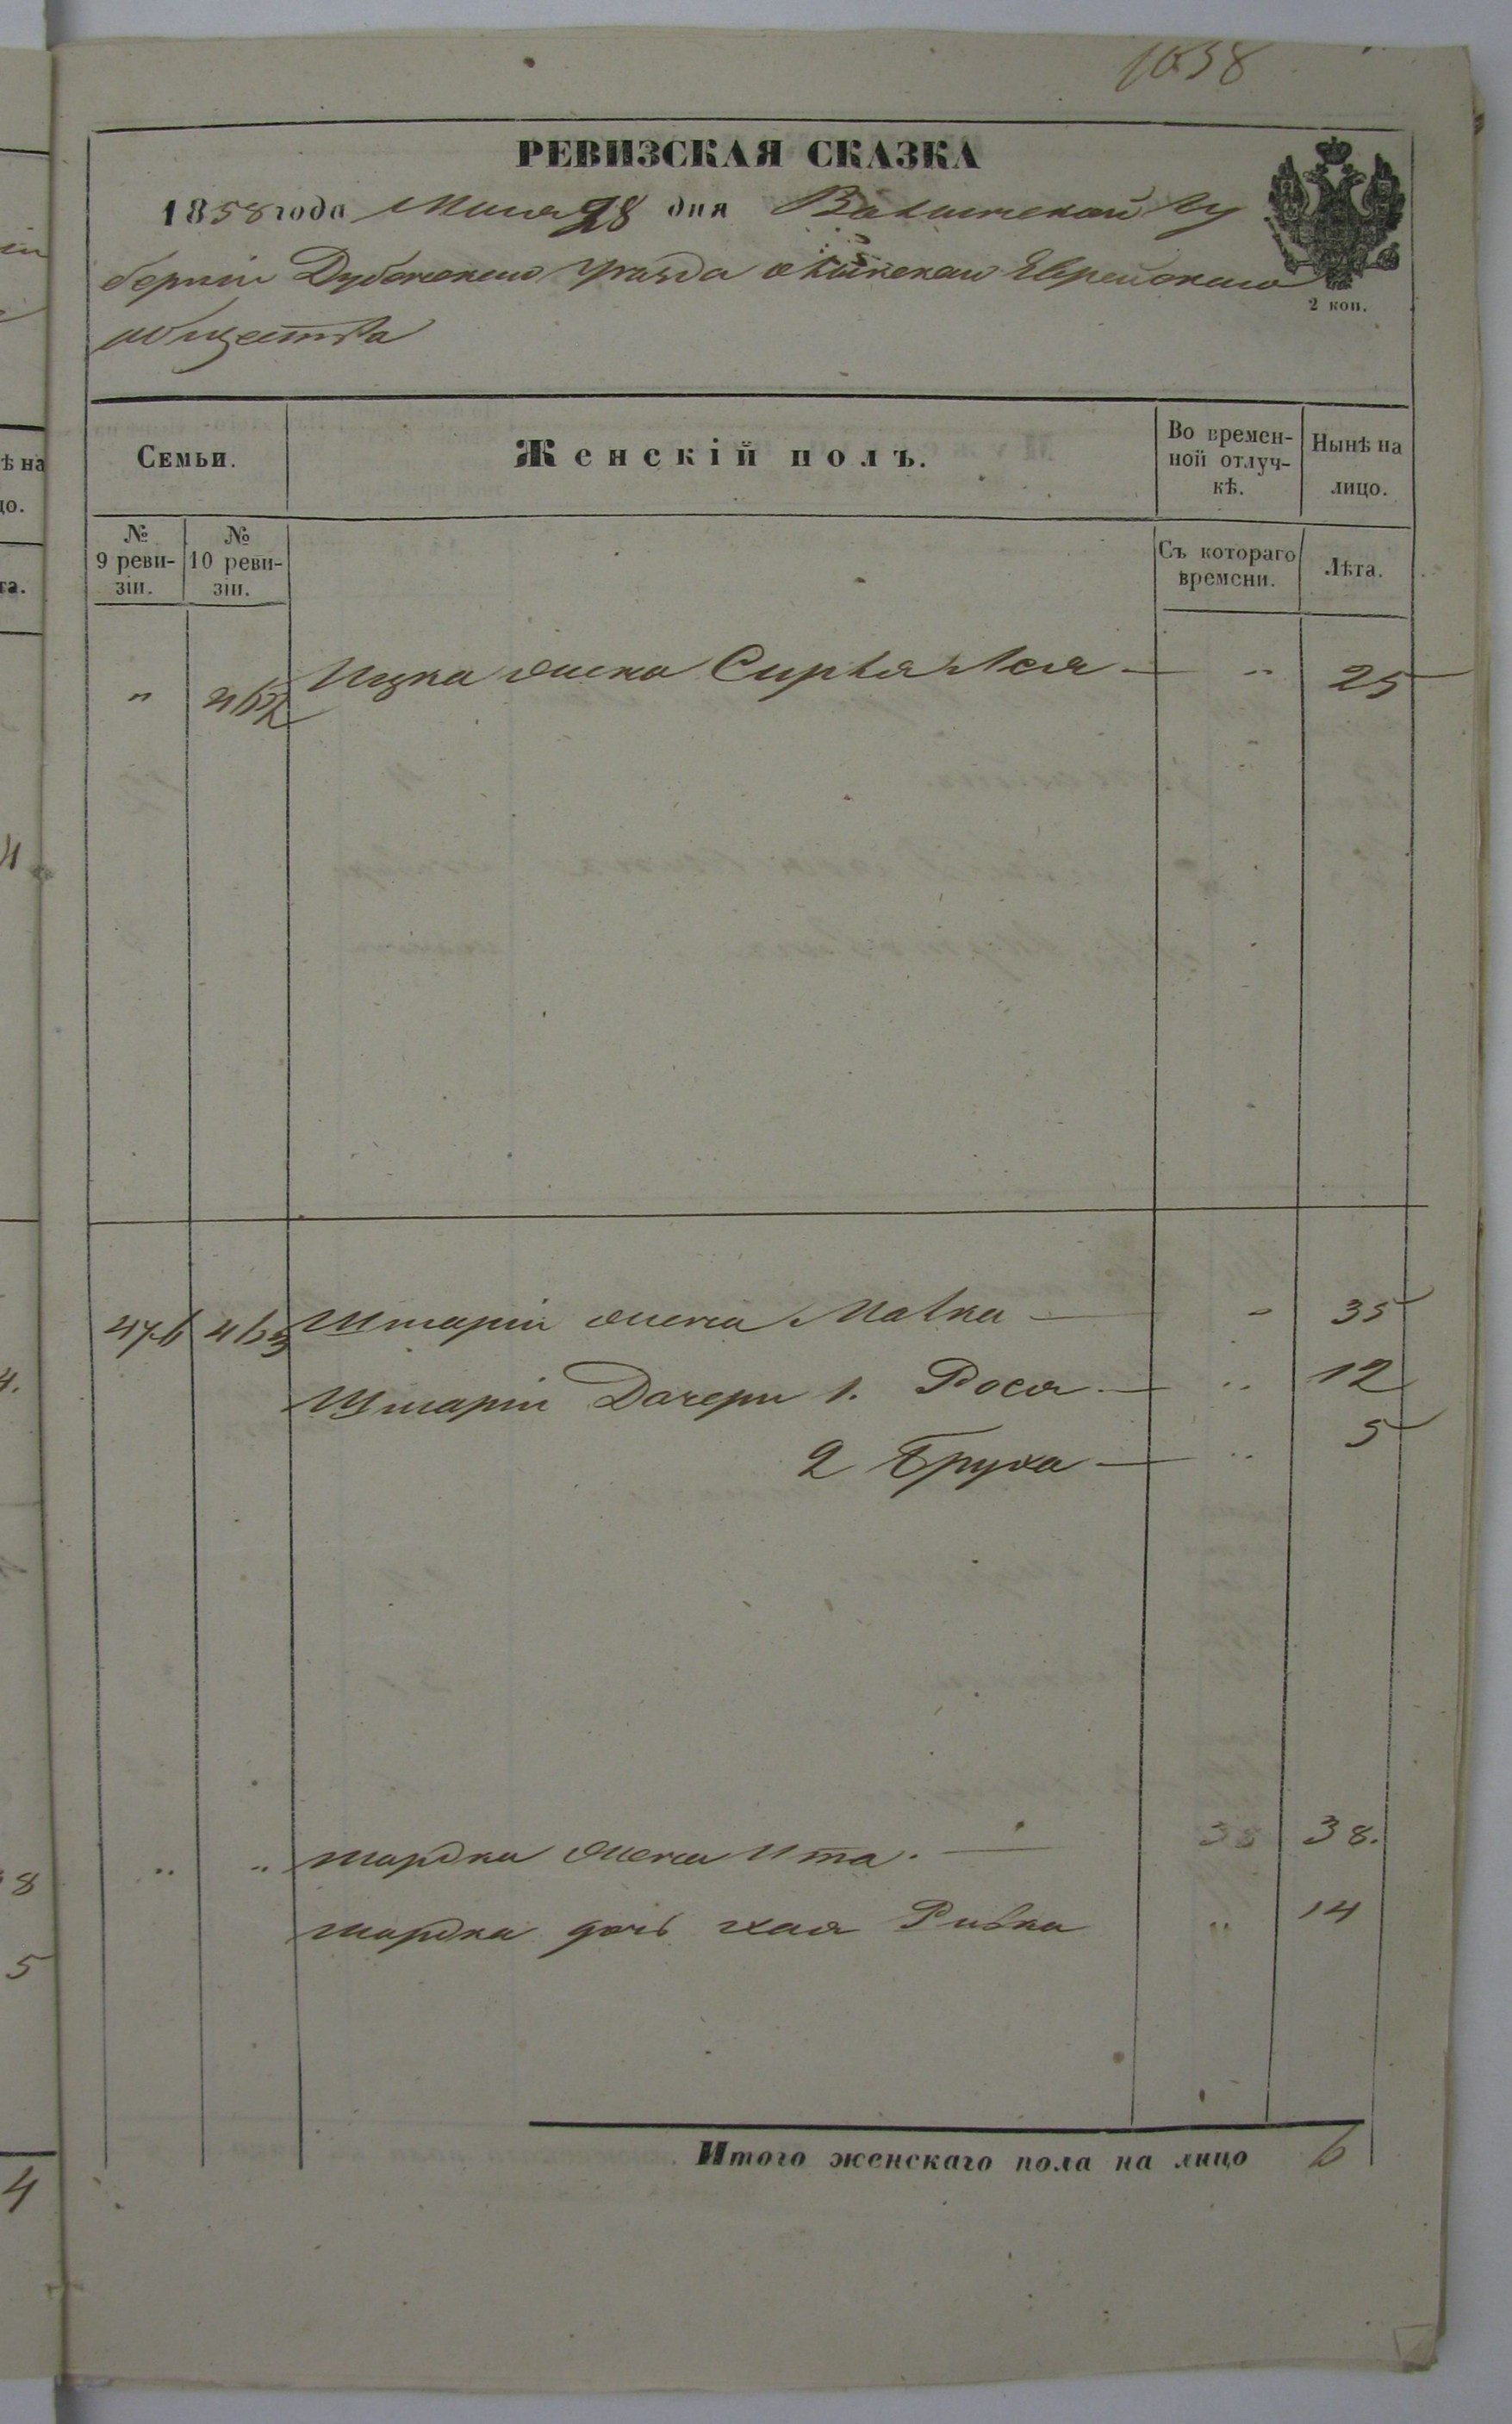 1038
РЕВИЗСКАЯ СКАЗКА
1858 года Мая 28 дня Волынской Гу
берніи Дубенскаго уѣзда Еврейскаго
общества
2 коп.
Семьи. Женскій полъ. Во времен-ной отлуч-кѣ. Нынѣ на лицо.
№ 9 реви-зіи. № 10 реви-зіи. Съ котораго времени. Лѣта.
" Ицка жена Сурья Лея — " 25
Шмарiи жена Малка — " 35
Шмарiи Дочери 1. Рося — " 12
2 Бруха — " 5
" " жена Ита. — 38.
дочь хая Ривка " 14
Итого женскаго пола на лицо 6